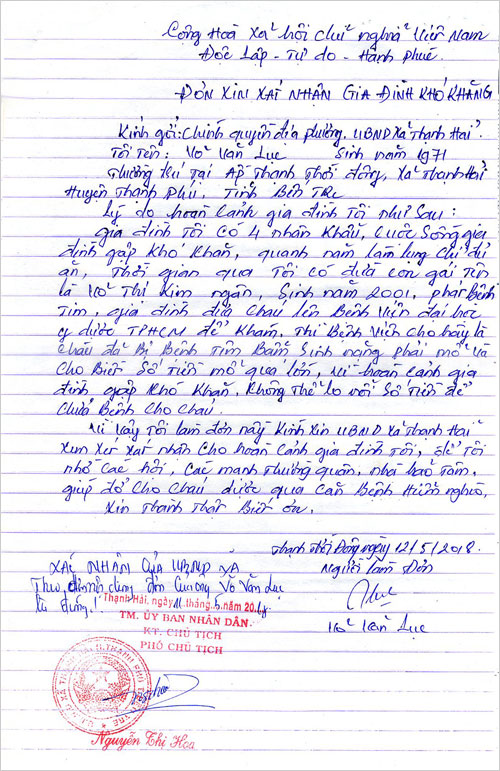 Cộng Hoà Xã hội chủ nghĩa Việt Nam
Độc Lập - Tự do - Hành Phúc
ĐƠN XIN XÁT NHẬN GIA ĐÌNH KHÓ KHĂNG
Kính gởi: Chính quyền địa phương, UBND Xã Thạnh Hải
Tôi Tên: Võ Văn Lục Sinh năm 1971
Thường trú Tại Ấp Thạnh Thới đông, Xã Thạnh Hải
Huyện Thạnh Phú, Tỉnh Bến Tre
Lý do hoàn Cảnh gia đình Tôi như Sau:
gia đình Tôi Có 4 nhân Khẩu, Cuộc Sống gia
định gặp Khó Khăn, quanh năm làm lụng Chỉ đủ
ăn, Thời gian qua Tôi có đứa con gái Tên
là Võ Thị Kim ngân, Sinh năm 2001, phát Bệnh
Tim, gia đình đưa Cháu lên Bệnh Viện đại học
y dược TPHCM để Khám. Thì Bệnh Viện Cho hay là
cháu đã Bị Bệnh Tim Bẩm Sinh nặng phải mổ và
Cho Biết Số Tiền mổ quá lớn, Vì hoàn cảnh gia
đình gặp Khó Khăn, Không Thể lo nổi Số Tiền để
Chữa Bệnh Cho Cháu.
Vì Vậy Tôi làm đơn này Kính Xin UBND Xã Thạnh Hải
Xem Xét Xát nhận Cho hoàn Cảnh gia đình Tôi, để Tôi
nhờ Các hội, Các mạnh Thường quân, nhà hảo Tâm,
giúp đở Cho Cháu được qua Căn Bệnh Hiểm nghèo,
Xin Thành Thật Biết ơn.
Thạnh Thới Đông ngày 12/5/2018
XÁC NHẬN CỦA UBND XÃ Người làm Đơn
Theo nội dung đơn của ông Võ Văn Lục
là đúng!
Thạnh Hải, ngày 11 tháng 5 năm 2018
TM. ỦY BAN NHÂN DÂN
KT. CHỦ TỊCH
PHÓ CHỦ TỊCH
Võ Văn Lục
Nguyễn Thị Hoa